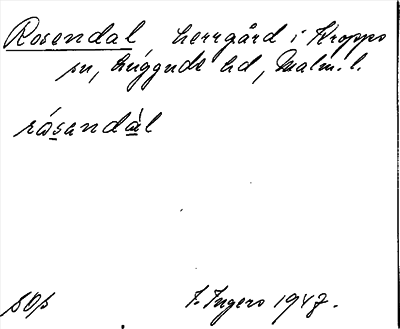 Rosendal herrgård i Kroppo
sn, Luggude hd, Malm. l.
rósandál
SOp
I. Ingers 1947.